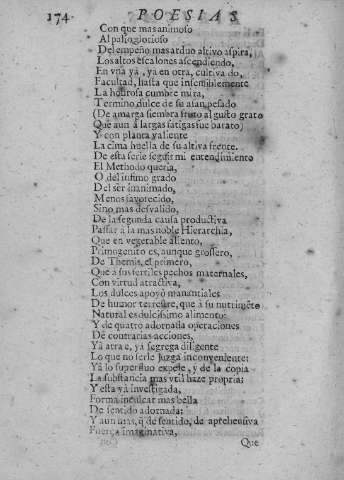 174 POESIAS
Con que mas animoso
Al passo glorioso
Del empeño mas arduo altivo aspira,
Los altos escalones ascendiendo,
En vna yà, yà en otra, cultivado,
Facultad, hasta que insensiblemente
La honrosa cumbre mira,
Termino dulce de su afan pesado
(De amarga siembra fruto al gusto grato
Que aun à largas fatigas fue barato)
Y con planta valiente
La cima huella de su altiva frente.
De esta serie seguir mi entendimiento
El Methodo queria,
O del infimo grado
Del ser inanimado,
Menos favorecido,
Sino mas desvalido,
De la segunda causa productiva
Passar à la mas noble Hierarchia,
Que en vegetable aliento,
Primogenito es, aunque grossero,
De Themis, el primero,
Que à sus fertiles pechos maternales,
Con virtud atractiva,
Los dulces apoyò manantiales
De humor terrestre, que à su nutrimẽto
Natural es dulcissimo alimento:
Y de quatro adornada operaciones
De contrarias acciones,
Yà atrae, yà segrega diligente
Lo que no serle juzga inconveniente:
Yà lo superfluo expele, y de la copia
La substancia mas vtil haze propria:
Y esta yà investigada,
Forma inculcar mas bella
De sentido adornada:
Y aun mas, q̃ de sentido, de aprehensiva
Fuerça imaginativa,
Que